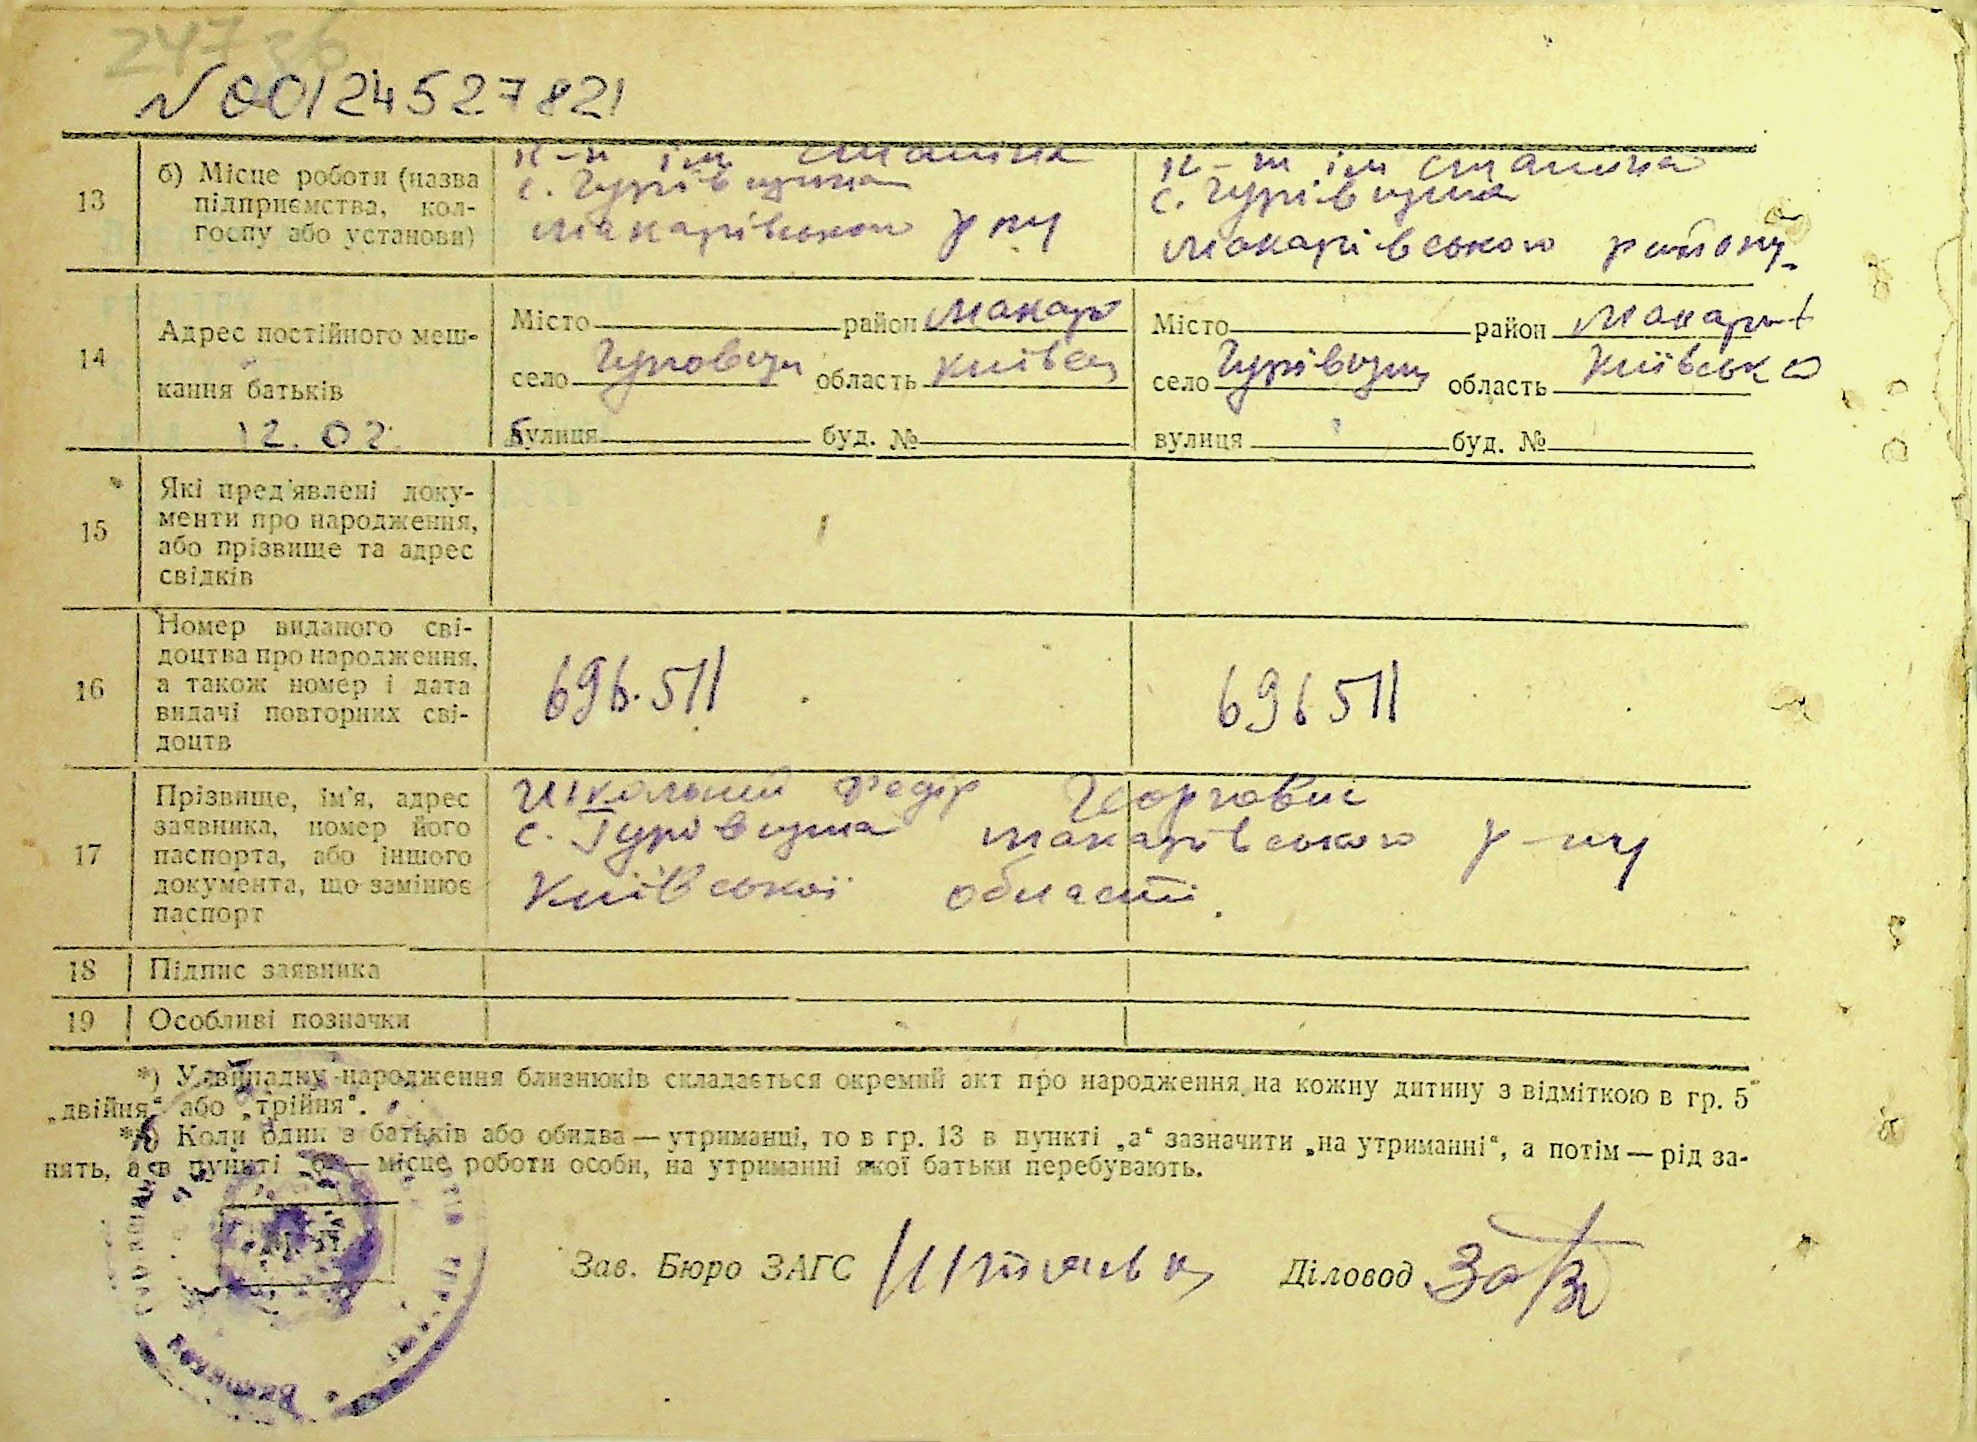 247 36
N 00124527821
13
б) Місце роботи (назва підприємства, колгоспу або установи)
к-п ім Сталіна
с. Гурівщина
Макарівського р ну
к-п ім Сталіна
с. Гурівщина
Макарівського району
14
Адрес постійного меш-
кання батьків
12.02.
Місто район Макарів
село Гуровщи область Київсц
вулиця буд. №
Місто район Макарів
село Гурівщин область Київсько
вулиця буд. №
15
Які пред'явлені доку-
менти про народження,
або прізвище та адрес
свідків
16
Номер виданого сві-
доцтва про народження,
а також номер і дата
видачі повторних сві-
доцтв
696.511
696511
17
Прізвище, ім'я, адрес
заявника, номер його
паспорта, або іншого
документа, що замінює
паспорт
Шкальний Федір Георгович
с. Гурівщина Макарівського р-ну
Київської області.
18 Підпис заявника
19 Особливі позначки
*) У випадку народження близнюків складається окремий акт про народження на кожну дитину з відміткою в гр. 5
„двійня“ або „трійня“.
**) Коли один з батьків або обидва — утриманці, то в гр. 13 в пункті „а“ зазначити „на утриманні“, а потім — рід за-
нять, а в пункті „б“ — місце роботи особи, на утриманні якої батьки перебувають.
Зав. Бюро ЗАГС Діловод